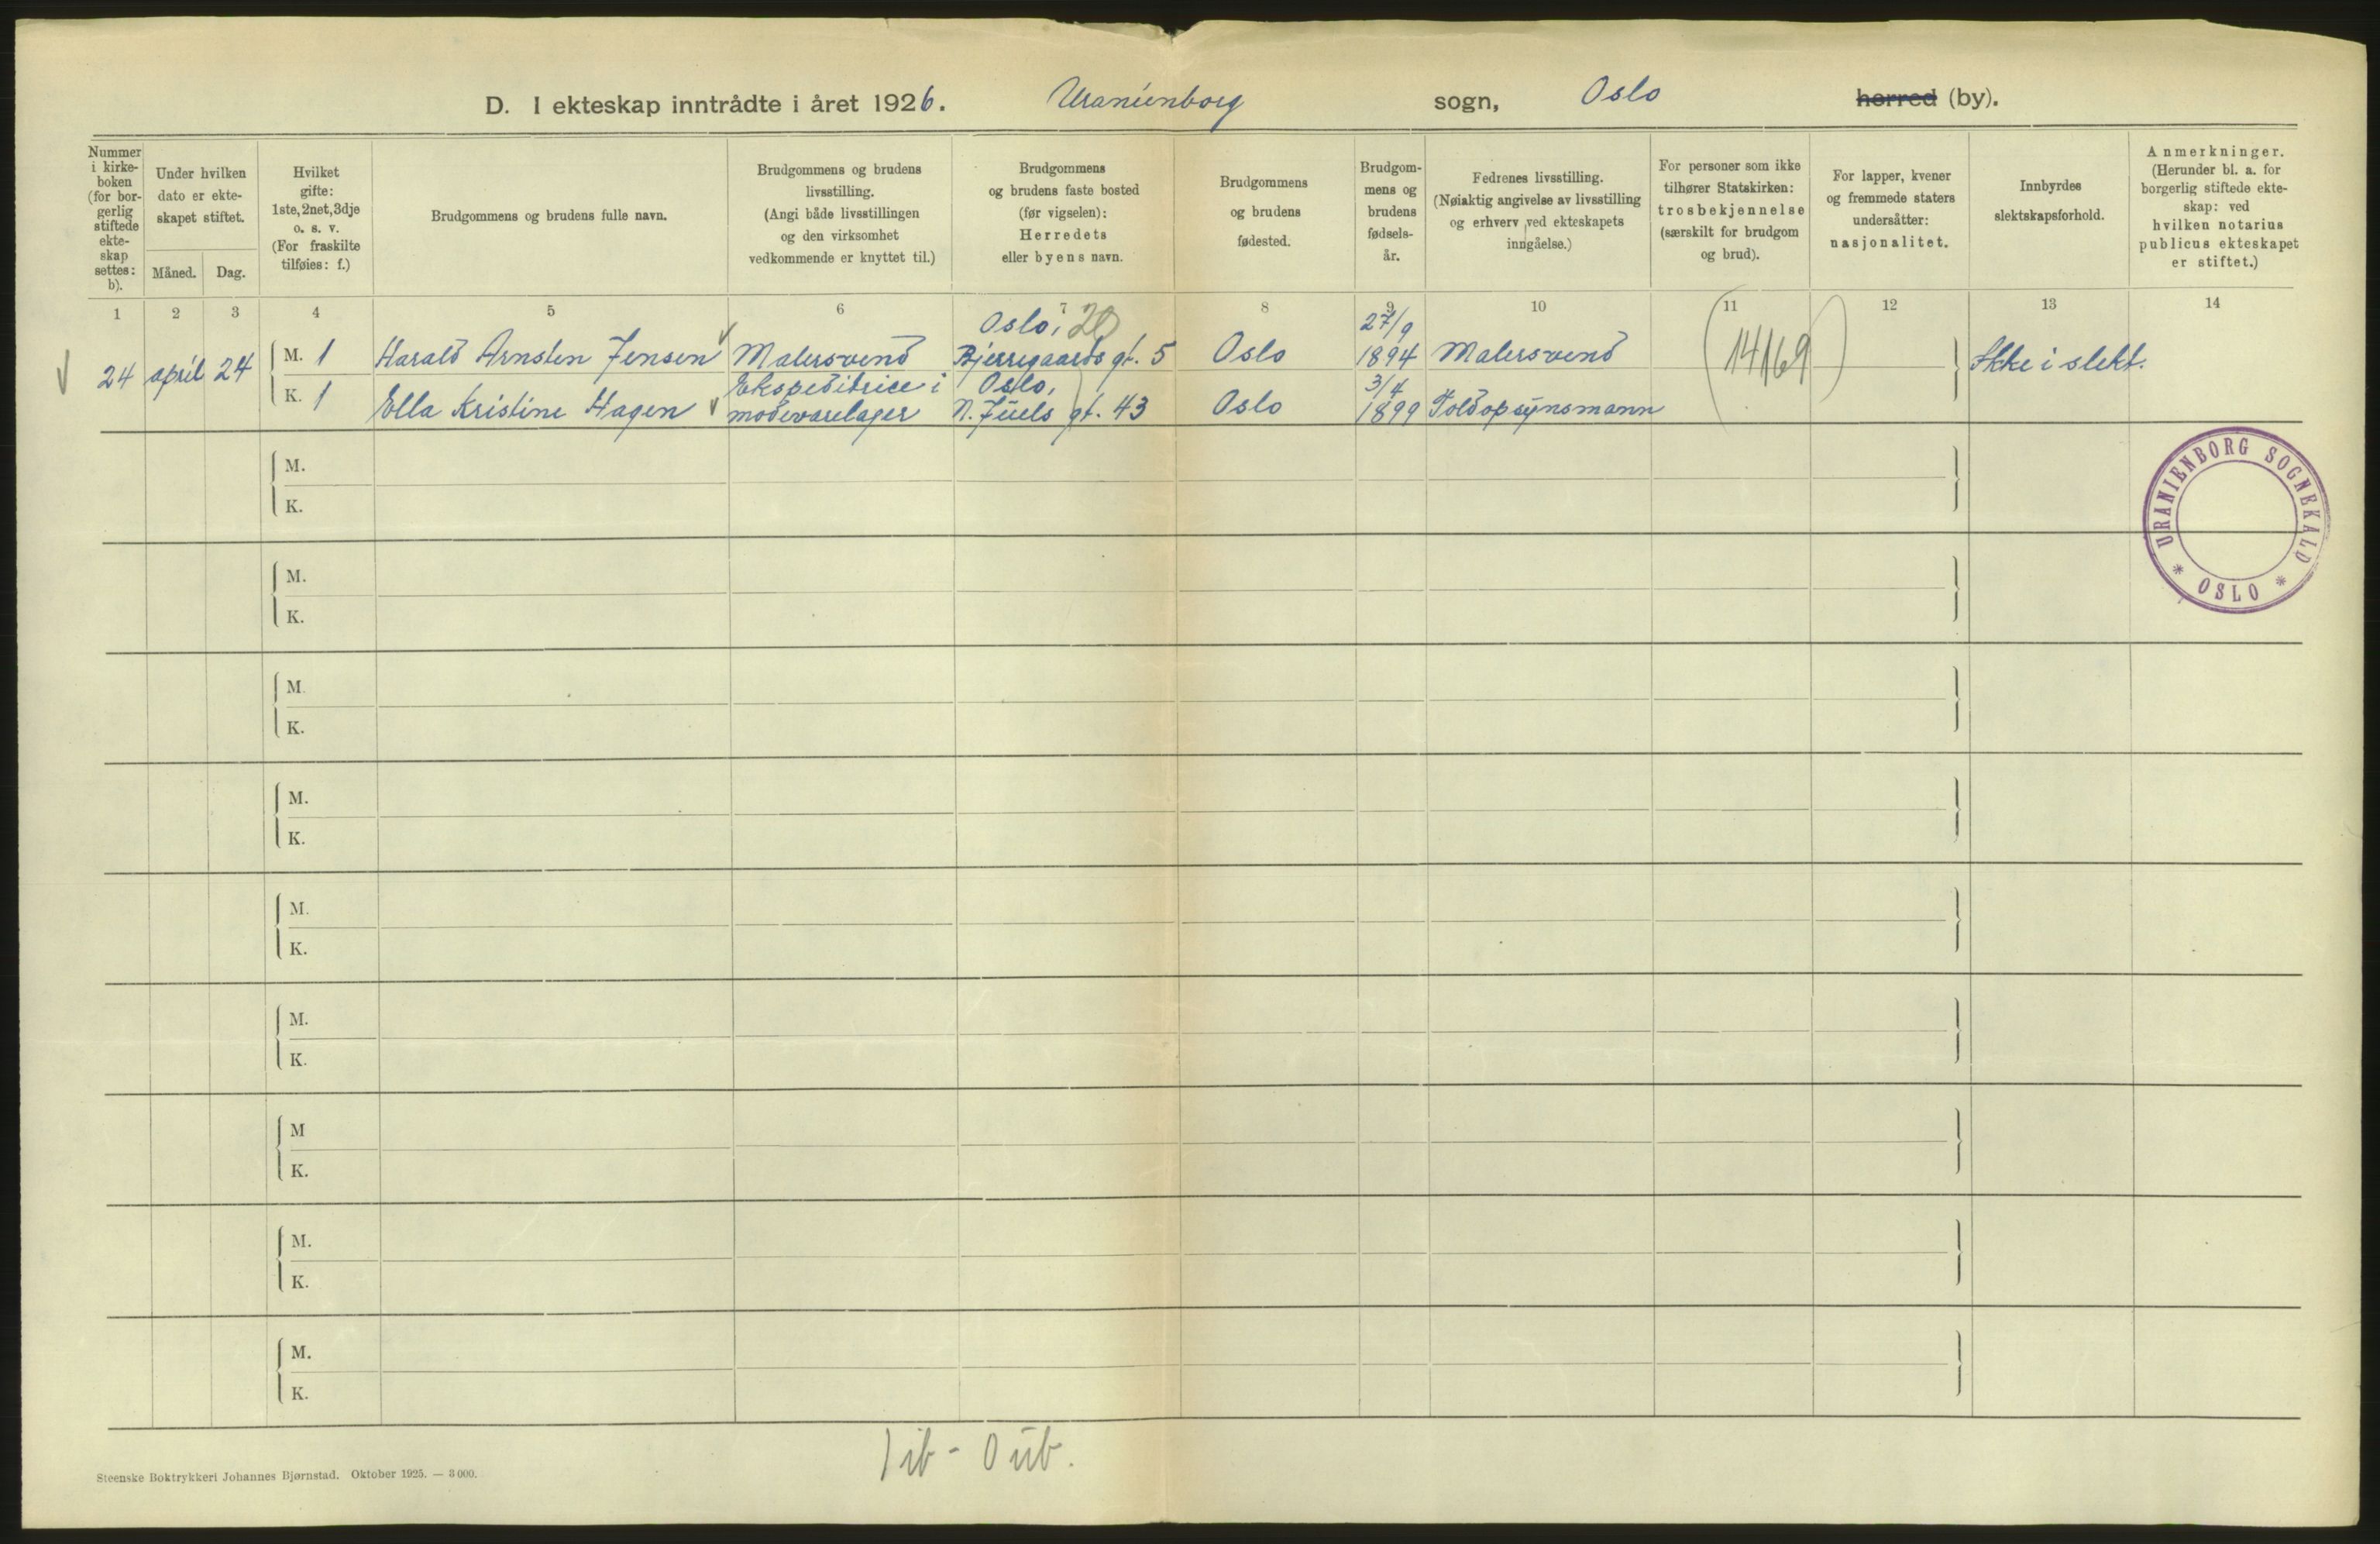 D. I ekteskap inntrådte i året 1926. Uranienborg sogn, Oslo herred (by).
Nummer i kirke- boken (for bor- gerlig stiftede ekte- skap settes: b).
Under hvilken dato er ekte- skapet stiftet.
Måned. Dag.
Hvilket gifte: 1ste, 2net, 3dje o. s. v. (For fraskilte tilføies: f.)
Brudgommens og brudens fulle navn.
Brudgommens og brudens livsstilling. (Angi både livsstillingen og den virksomhet vedkommende er knyttet til.)
Brudgommens og brudens faste bosted (før vigselen): Herredets eller byens navn.
Brudgommens og brudens fødested.
Brudgom- mens og brudens fødsels- år.
Fedrenes livsstilling. (Nøiaktig angivelse av livsstilling og erhverv ved ekteskapets inngåelse.)
For personer som ikke tilhører Statskirken: trosbekjennelse (særskilt for brudgom og brud).
For lapper, kvener og fremmede staters undersåtter: nasjonalitet.
Innbyrdes slektskapsforhold.
Anmerkninger. (Herunder bl. a. for borgerlig stiftede ekte- skap: ved hvilken notarius publicus ekteskapet er stiftet.)
1 2 3 4 5 6 7 8 9 10 11 12 13 14
24 april 24
M. 1 Harald Arnsten Jensen Malersvend Oslo, 20 Bjerregaards gt. 5 Oslo 27/9 1894 Malersvend
K. 1 Ella Kristine Hagen Ekspeditrice i motevarelager Oslo, N. Juels gt. 43 Oslo 3/4 1899 Toldopsynsmann
(14169)
Ikke i slekt.
M.
K.
M.
K.
M.
K.
M.
K.
M.
K.
M.
K.
M
K.
M.
K.
M.
K.
URANIENBORG SOGNEKALD * OSLO *
1 ib - 0 ub.
Steenske Boktrykkeri Johannes Bjørnstad. Oktober 1925. — 3 000.